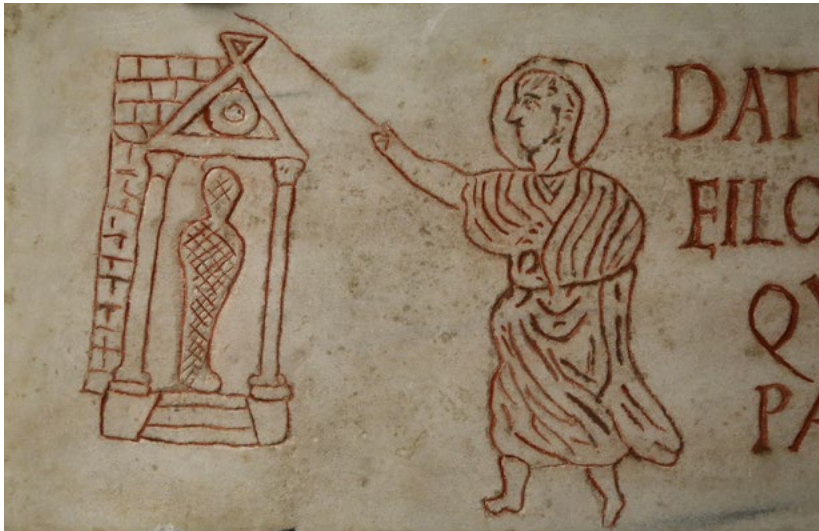 DAT
EILO
Q
PA